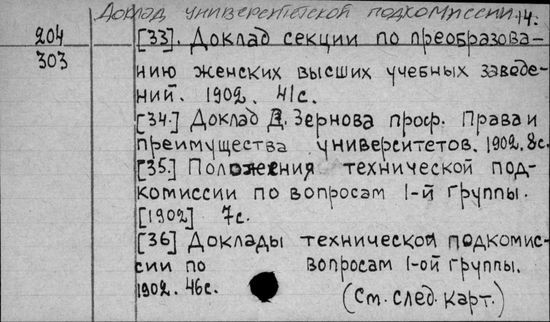 Доклад университетской подкомиссии. 14.
204 [33]. Доклад секции по преобразова-
303 нию женских высших учебных заведе-
ний. 1902. 41с.
[34.] Доклад Д. Зернова проф. Права и
преимущества университетов. 1902. 8с.
[35.] Положения технической под-
комиссии по вопросам 1-й группы.
[1902] 7с.
[36] Доклады технической подкомис-
сии по вопросам 1-ой группы.
1902. 46с.
(См. след. карт.)